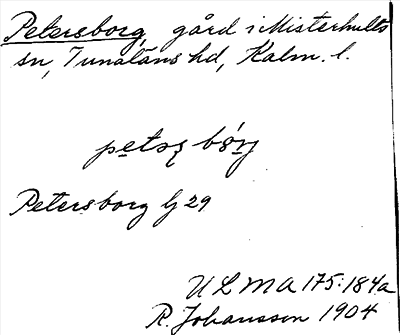 Petersborg, gård i Misterhults
sn, Tunaläns hd, Kalm. l.
Petersborg lj 29
ULMA 175:184a
R. Johansson 1904